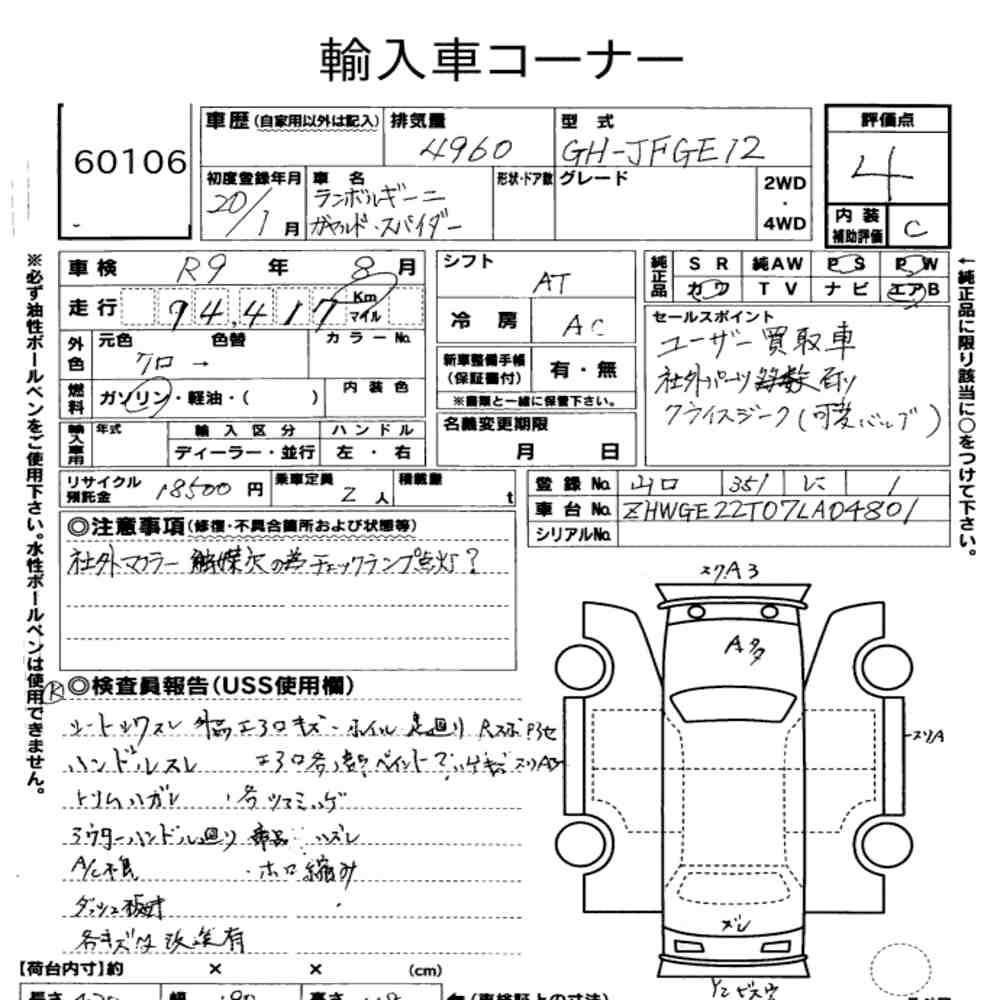 輸入車コーナー
60106
車歴 (自家用以外は記入) 排気量 型式 評価点
4960 GH-JFGE12 4
初度登録年月 車名 形状・ドア数 グレード 2WD・4WD
20/1月 ランボルギーニ
ガヤルド・スパイダー
内装補助評価 C
車検 R9年 8月
走行 94,417 Km マイル
外色 元色 色替 カラーNo.
クロ →
燃料 ガソリン・軽油・( ) 内装色
輸入車用 年式 輸入区分 ハンドル
ディーラー・並行 左・右
シフト AT
冷房 AC
新車整備手帳(保証書付) 有・無
※書類と一緒に保管下さい。
名義変更期限
月 日
純正品 SR 純AW PS PW
カワ TV ナビ エアB
セールスポイント
ユーザー買取車
社外パーツ多数有り
クライスジーク(可変バルブ)
リサイクル預託金 18500円 乗車定員 2人 積載量 t
登録No. 山口 351 に 1
車台No. ZHWGE22T07LA04801
シリアルNo.
◎注意事項(修復・不具合箇所および状態等)
社外マフラー 触媒欠の為チェックランプ点灯?
◎検査員報告(USS使用欄)
シートスレ 外品エアロキズ・ホイル
ハンドルスレ エアロ各部ペイント
トリムハガレ ・各ツマミハゲ
アウターハンドル廻り 部品ハズレ
A/C不良 ・ホロ縮み
ダッシュ
各キズ 改造有
スリA3
A多
スリA
ズレ
【荷台内寸】約 × × (cm)
長さ 幅 高さ (車検証上の寸法)
※必ず油性ボールペンをご使用下さい。水性ボールペンは使用できません。
←純正品に限り該当に○をつけて下さい。